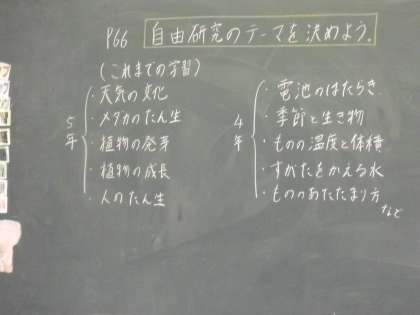 P66 自由研究のテーマを決めよう。
(これまでの学習)
5年
・天気の文化
・メダカのたん生
・植物の発芽
・植物の成長
・人のたん生
4年
・電池のはたらき
・季節と生き物
・ものの温度と体積
・すがたをかえる水
・もののあたたまり方
など